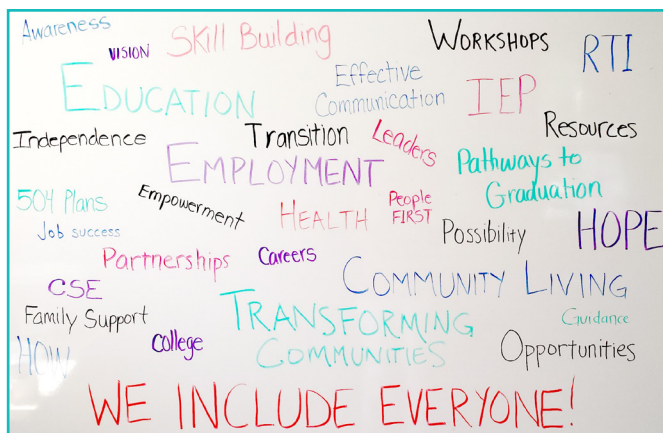 Awareness
VISION
Skill Building
WORKSHOPS
RTI
EDUCATION
Effective
Communication
IEP
Resources
Independence
Transition
Leaders
EMPLOYMENT
Pathways to
Graduation
504 Plans
Empowerment
HEALTH
People
FIRST
Job success
Possibility
HOPE
Partnerships
Careers
CSE
COMMUNITY LIVING
Family Support
TRANSFORMING
COMMUNITIES
Guidance
HOW
College
Opportunities
WE INCLUDE EVERYONE!